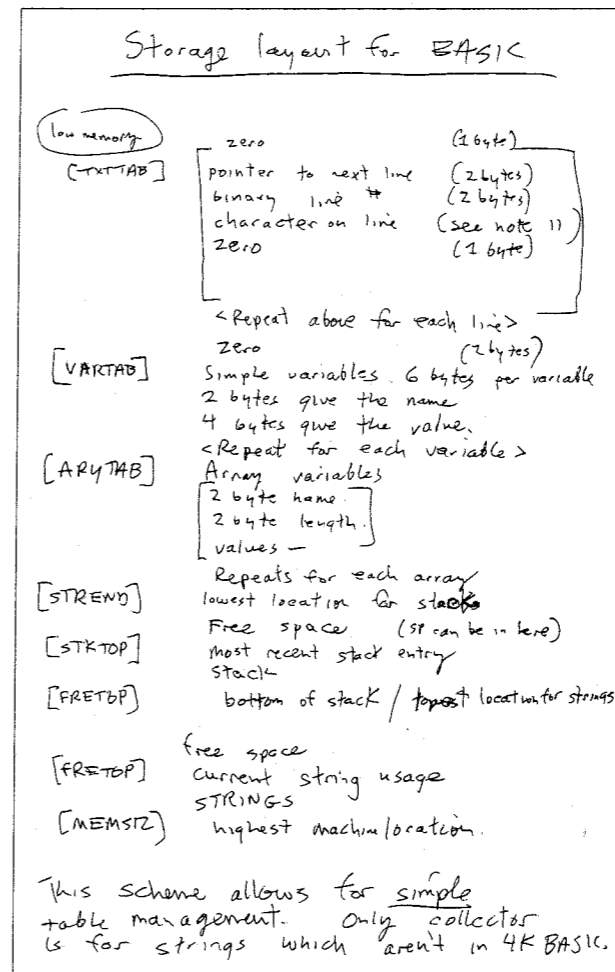 Storage layout for BASIC
low memory
zero (1 byte)
[TXTTAB] pointer to next line (2 bytes)
binary line # (2 bytes)
character on line (see note 11)
zero (1 byte)
<Repeat above for each line>
zero (2 bytes)
[VARTAB] Simple variables 6 bytes per variable
2 bytes give the name
4 bytes give the value.
<Repeat for each variable>
[ARYTAB] Array variables
2 byte name.
2 byte length.
values —
Repeats for each array
[STREND] lowest location for stack
Free space (SP can be in here)
[STKTOP] most recent stack entry
stack
[FRETOP] bottom of stack / location for strings
free space
[FRETOP] current string usage
STRINGS
[MEMSIZ] highest machine location.
This scheme allows for simple
table management. Only collector
is for strings which aren't in 4K BASIC.